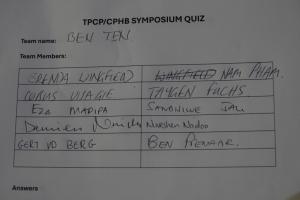 TPCP/CPHB SYMPOSIUM QUIZ
Team name: BEN TEN
Team Members:
BRENDA WINGFIELD WINGFIELD NAM PHAM.
TAYGEN FUCHS
EZA MADIPA SANDNIWE JALI
Damien Narshen Nadoo
GERT VD BERG BEN PIENAAR.
Answers